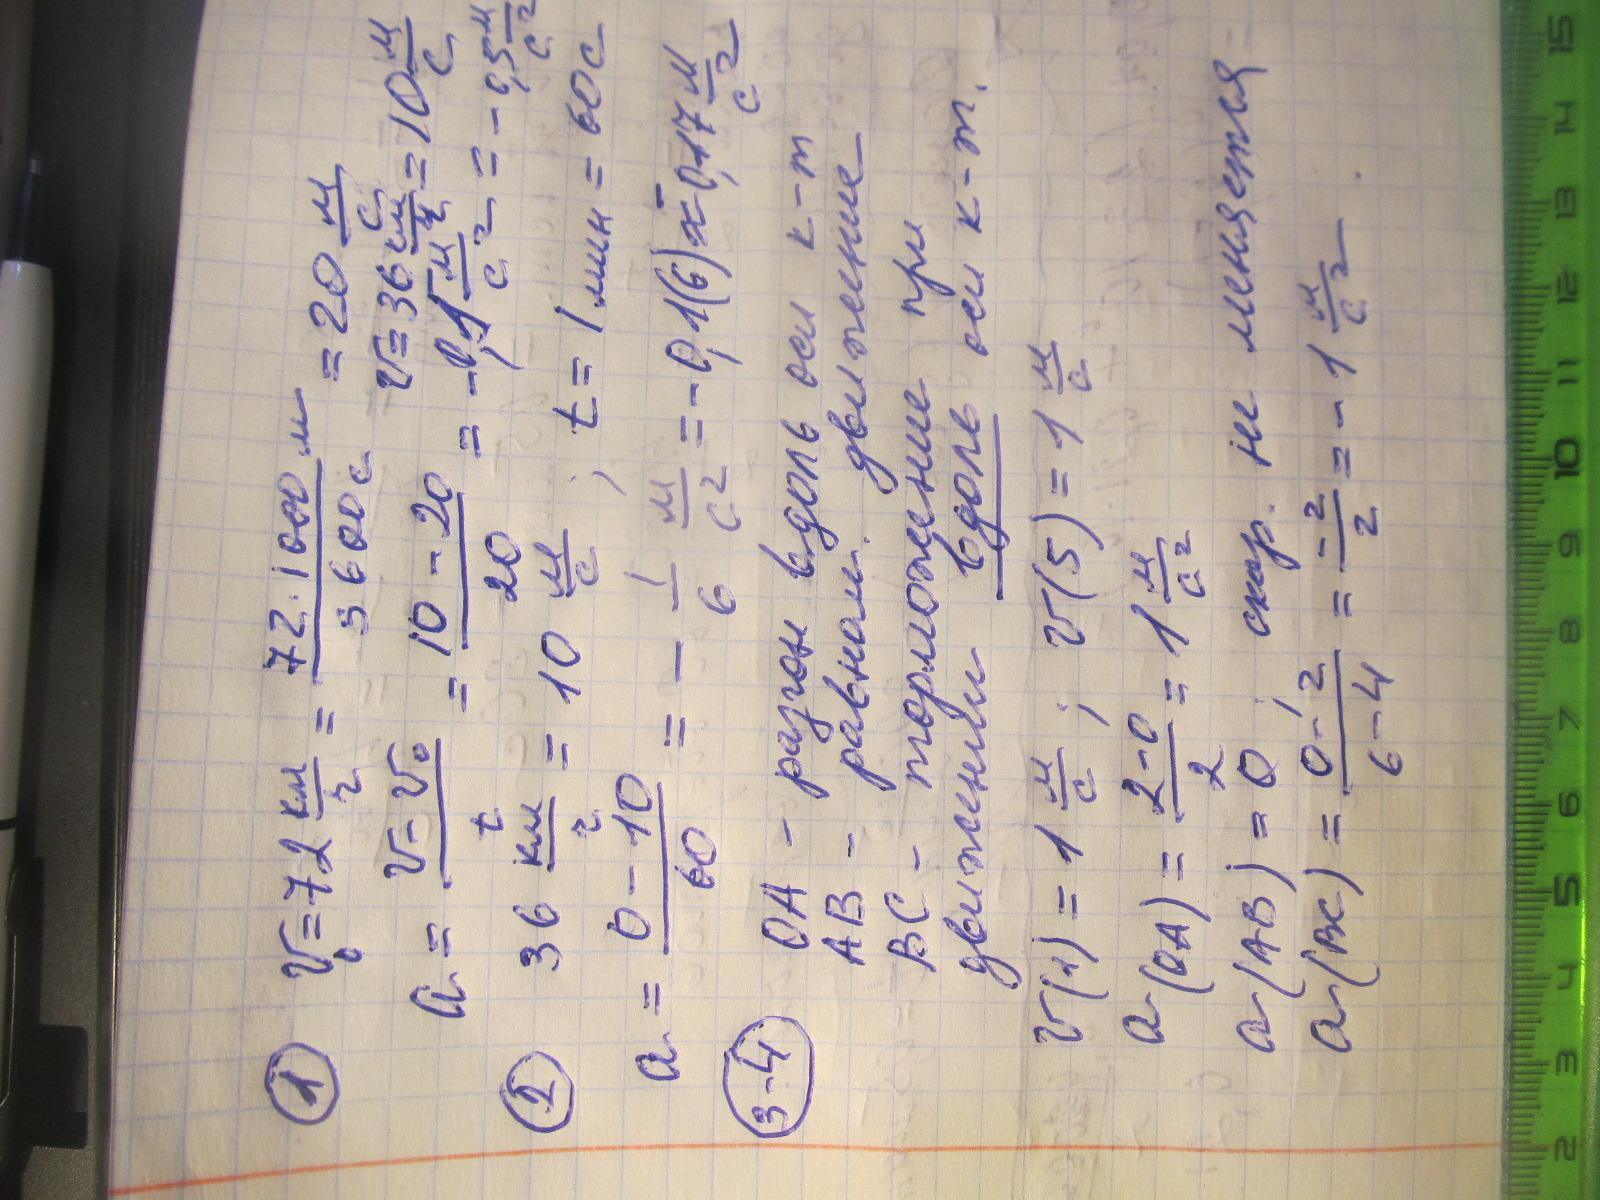 ① v₀ = 72 км/ч = 72·1000 м / 3600 с = 20 м/с
v = 36 км/ч = 10 м/с
a = (v - v₀)/t = (10 - 20)/20 = -0,5 м/с²
② 36 км/ч = 10 м/с ; t = 1 мин = 60 с
a = (0 - 10)/60 = - 1/6 м/с² = -0,1(6) ≈ -0,17 м/с²
③-④ OA - разгон вдоль оси к-т
AB - равном. движение
BC - торможение при
движении вдоль оси к-т.
v(1) = 1 м/с ; v(5) = 1 м/с
a(OA) = (2-0)/2 = 1 м/с²
a(AB) = 0 ; скор. не меняется
a(BC) = (0-2)/(6-4) = -2/2 = -1 м/с²
15
14
13
12
11
10
9
8
7
6
5
4
3
2